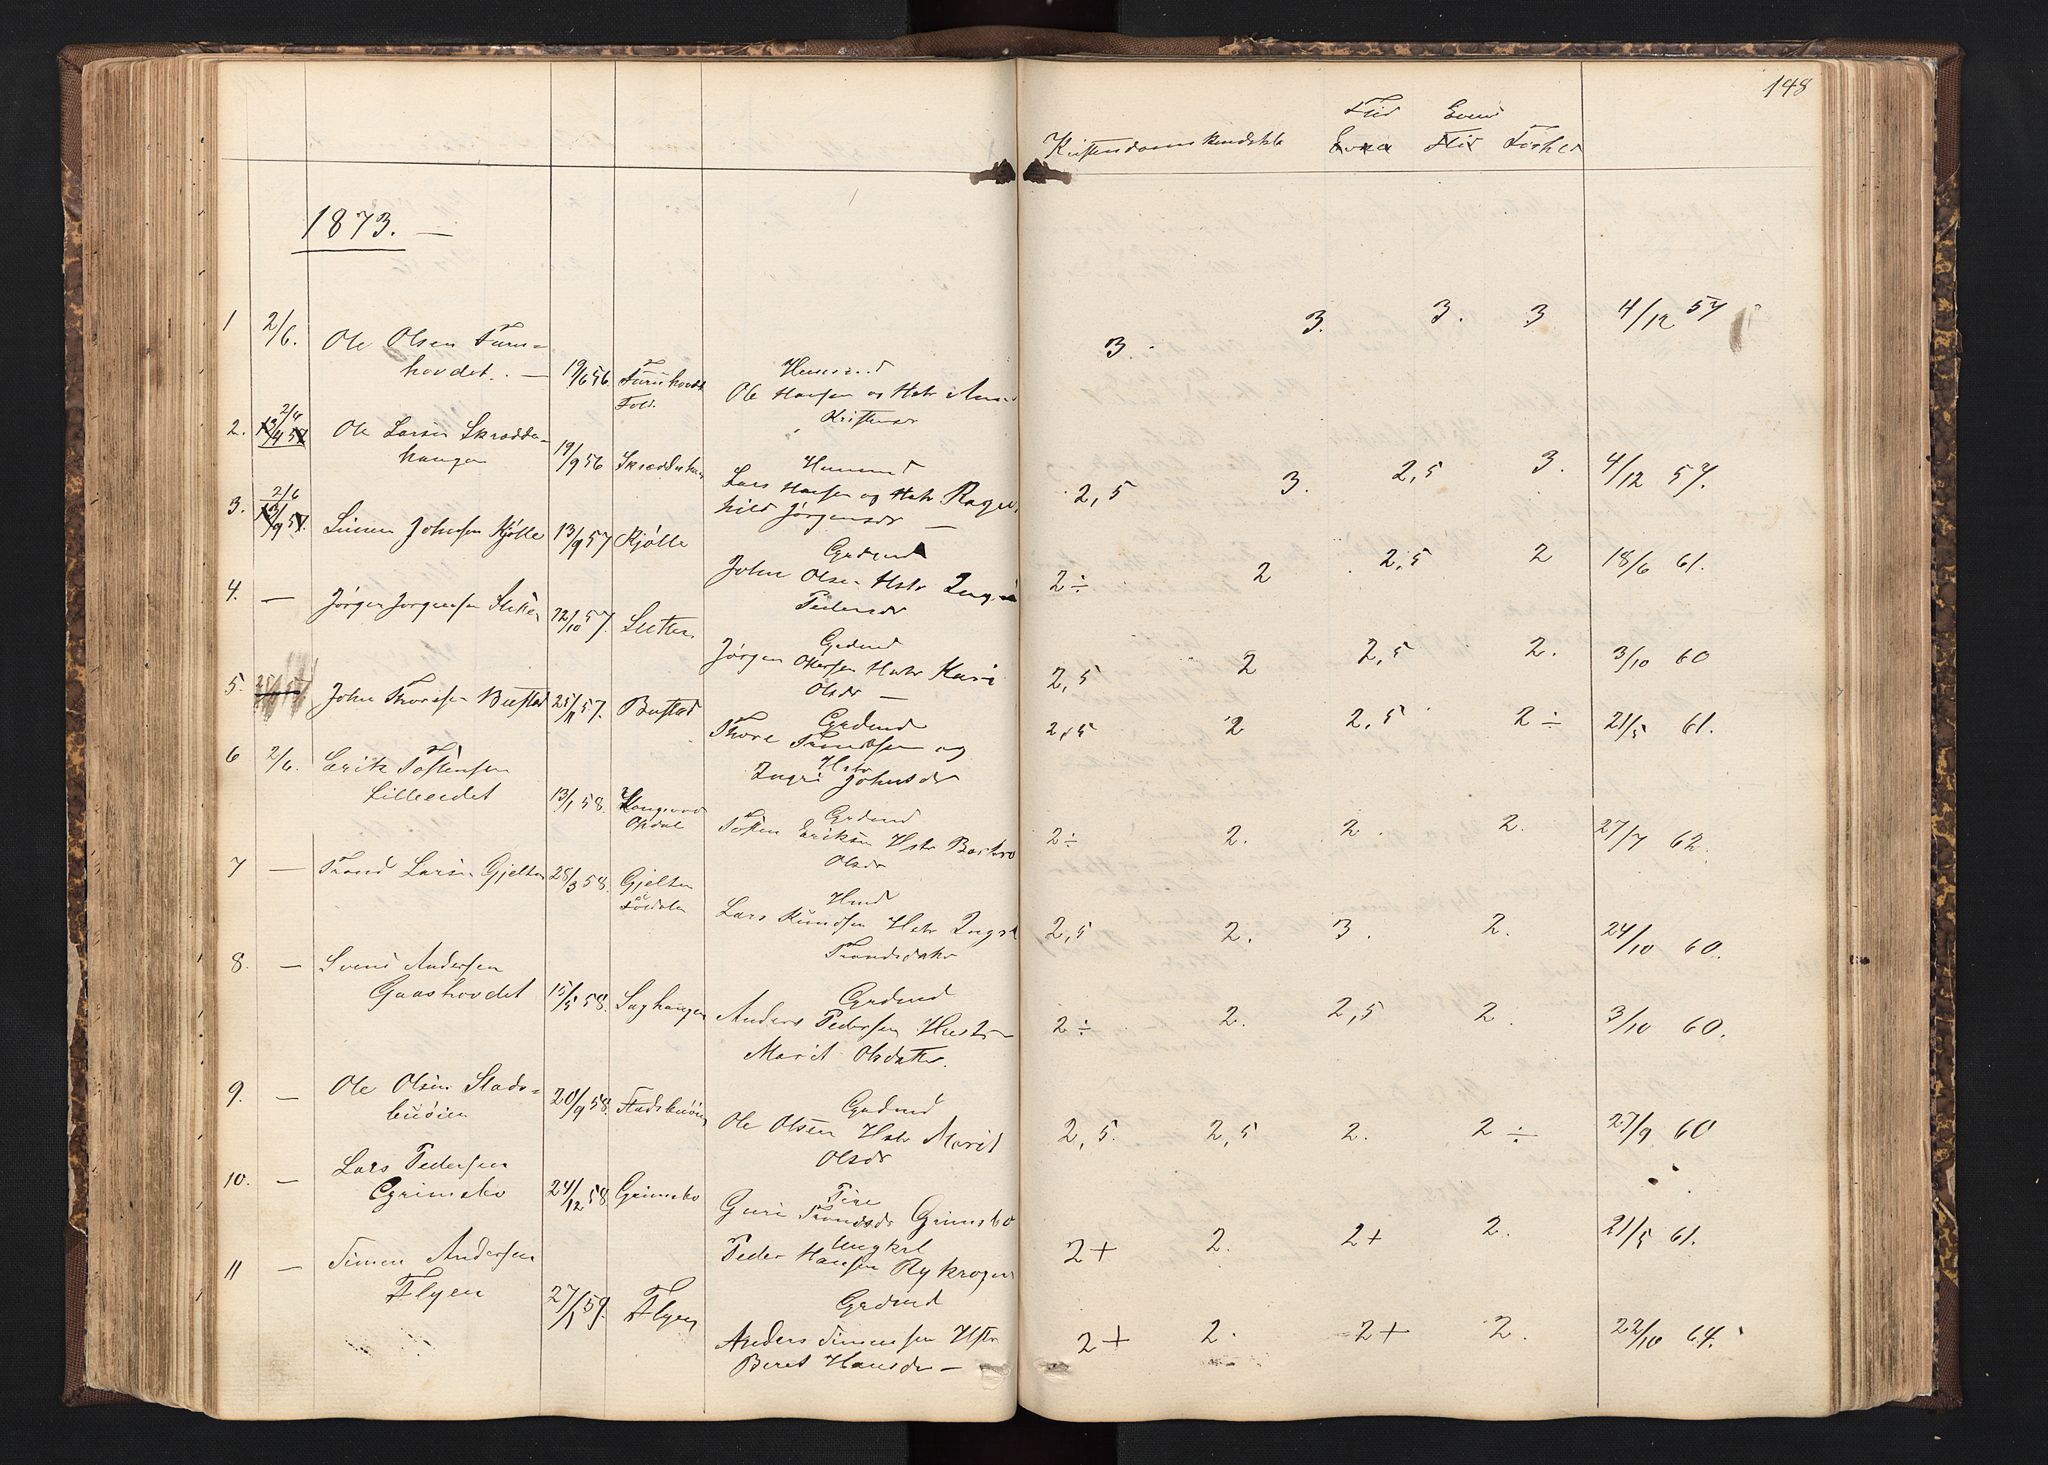 148
Kristendomskundskb
Flid
Evne
Evne
Flid
Forhol
1873. —
1
2/6.
Ole Olsen Furu=
hovdet. —
19/6 56.
Furuhovdt
Fold.
Husmd
Ole Hansen og Hstr Anne
Kristensdr
3.
3.
3.
3
4/12 57
2.
2/6
Ole Larsen Skrædder
haugen
19/9 56
Skrædderhaug
Husmd
Lars Hansen og Hstr Ragn
hild Jørgensdr —
2,5
3.
2,5
3.
4/12 57.
3.
2/6
Simen Johnsen Kjølle
13/9 57
Kjølle
Grdmd
John Olsen Hstr Ingri
Pedersdr
2 ÷
2
2,5
2
18/6 61.
4.
—
Jørgen Jørgensen
22/10 57.
Grdmd
Jørgen Hstr Kari
Olsdr —
2,5
2
2,5
2.
3/10 60
5.
John Thoresen Bustad
25/11 57.
Bustad
Grdmd
Thore Trondsen og
Hstr
Ingri Johnsdr
2,5
2
2,5
2 ÷
21/5 61.
6
2/6.
Erik Tostensen
Lilleeidet
13/1 58
Opdal
Grdmd
Tosten Eriksen Hstr Barbro
Olsdr
2 ÷
2.
2.
2.
27/7 62.
7
—
Trond Larsen Gjelten
28/3 58.
Gjelten
Foldalen
Hmd
Lars Knudsen Hstr
Trondsdatr
2,5
2.
3.
2.
24/10 60.
8.
—
Svend Andersen
Gaashovdet
15/5 58.
Saghaugen
Grdmd
Anders Pedersen Hustr
Marit Olsdatter.
2 ÷
2.
2,5
2.
3/10 60.
9.
—
Ole Olsen Stads=
buøien
20/9 58.
Stadsbuøien
Grdmd
Ole Olsen Hstr Marit
Olsdr
2,5.
2,5
2.
2 ÷
27/9 60
10.
—
Lars Pedersen
Grimsbo
24/12 58.
Grimsbo
Pige
Guri Trondsdr Grimsbo
Ungkrl
Peder Hansen Rykrogen
2 +
2.
2 +
2.
21/5 61.
11
—
Simen Andersen
Flyen
27/1 59.
Flyen
Grdmd
Anders Simensen Hstr
Beret Hansdr —
2 +
2.
2 +
2.
22/10 64.